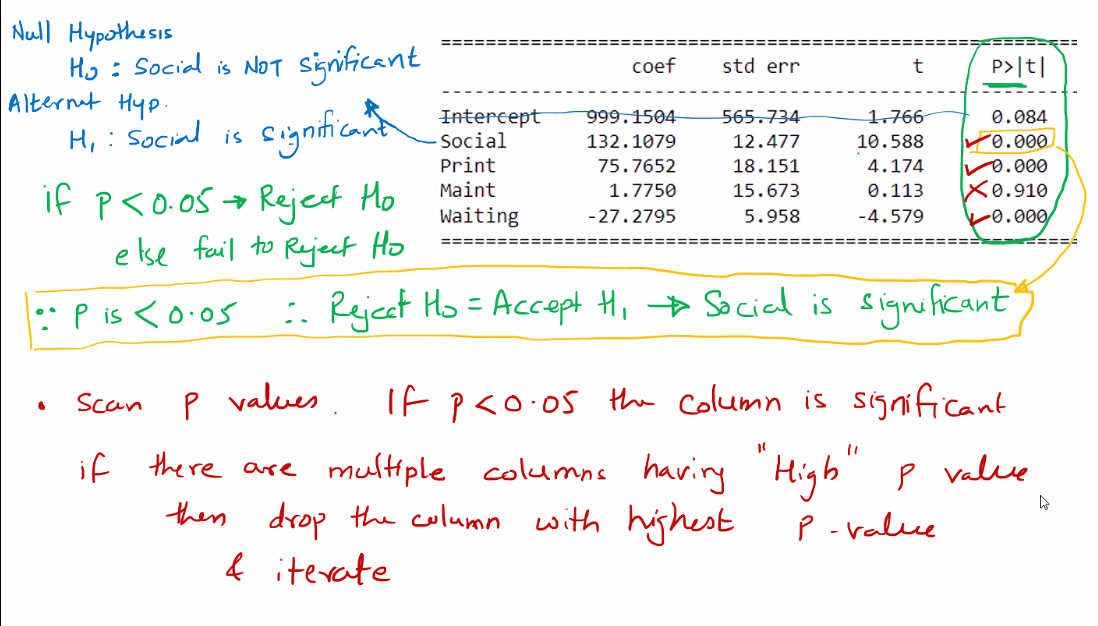 Null Hypothesis
H₀ : Social is NOT Significant
Alternut Hyp.
H₁ : Social is significant
if P < 0.05 → Reject H₀
else fail to Reject H₀
==================================================
coef std err t P>|t|
--------------------------------------------------
Intercept 999.1504 565.734 1.766 0.084
Social 132.1079 12.477 10.588 ✓0.000
Print 75.7652 18.151 4.174 ✓0.000
Maint 1.7750 15.673 0.113 ✗0.910
Waiting -27.2795 5.958 -4.579 ✓0.000
==================================================
∵ P is < 0.05 ∴ Reject H₀ = Accept H₁ → Social is significant
• Scan P values. If P < 0.05 the column is significant
if there are multiple columns having "High" P value
then drop the column with highest P-value
& iterate